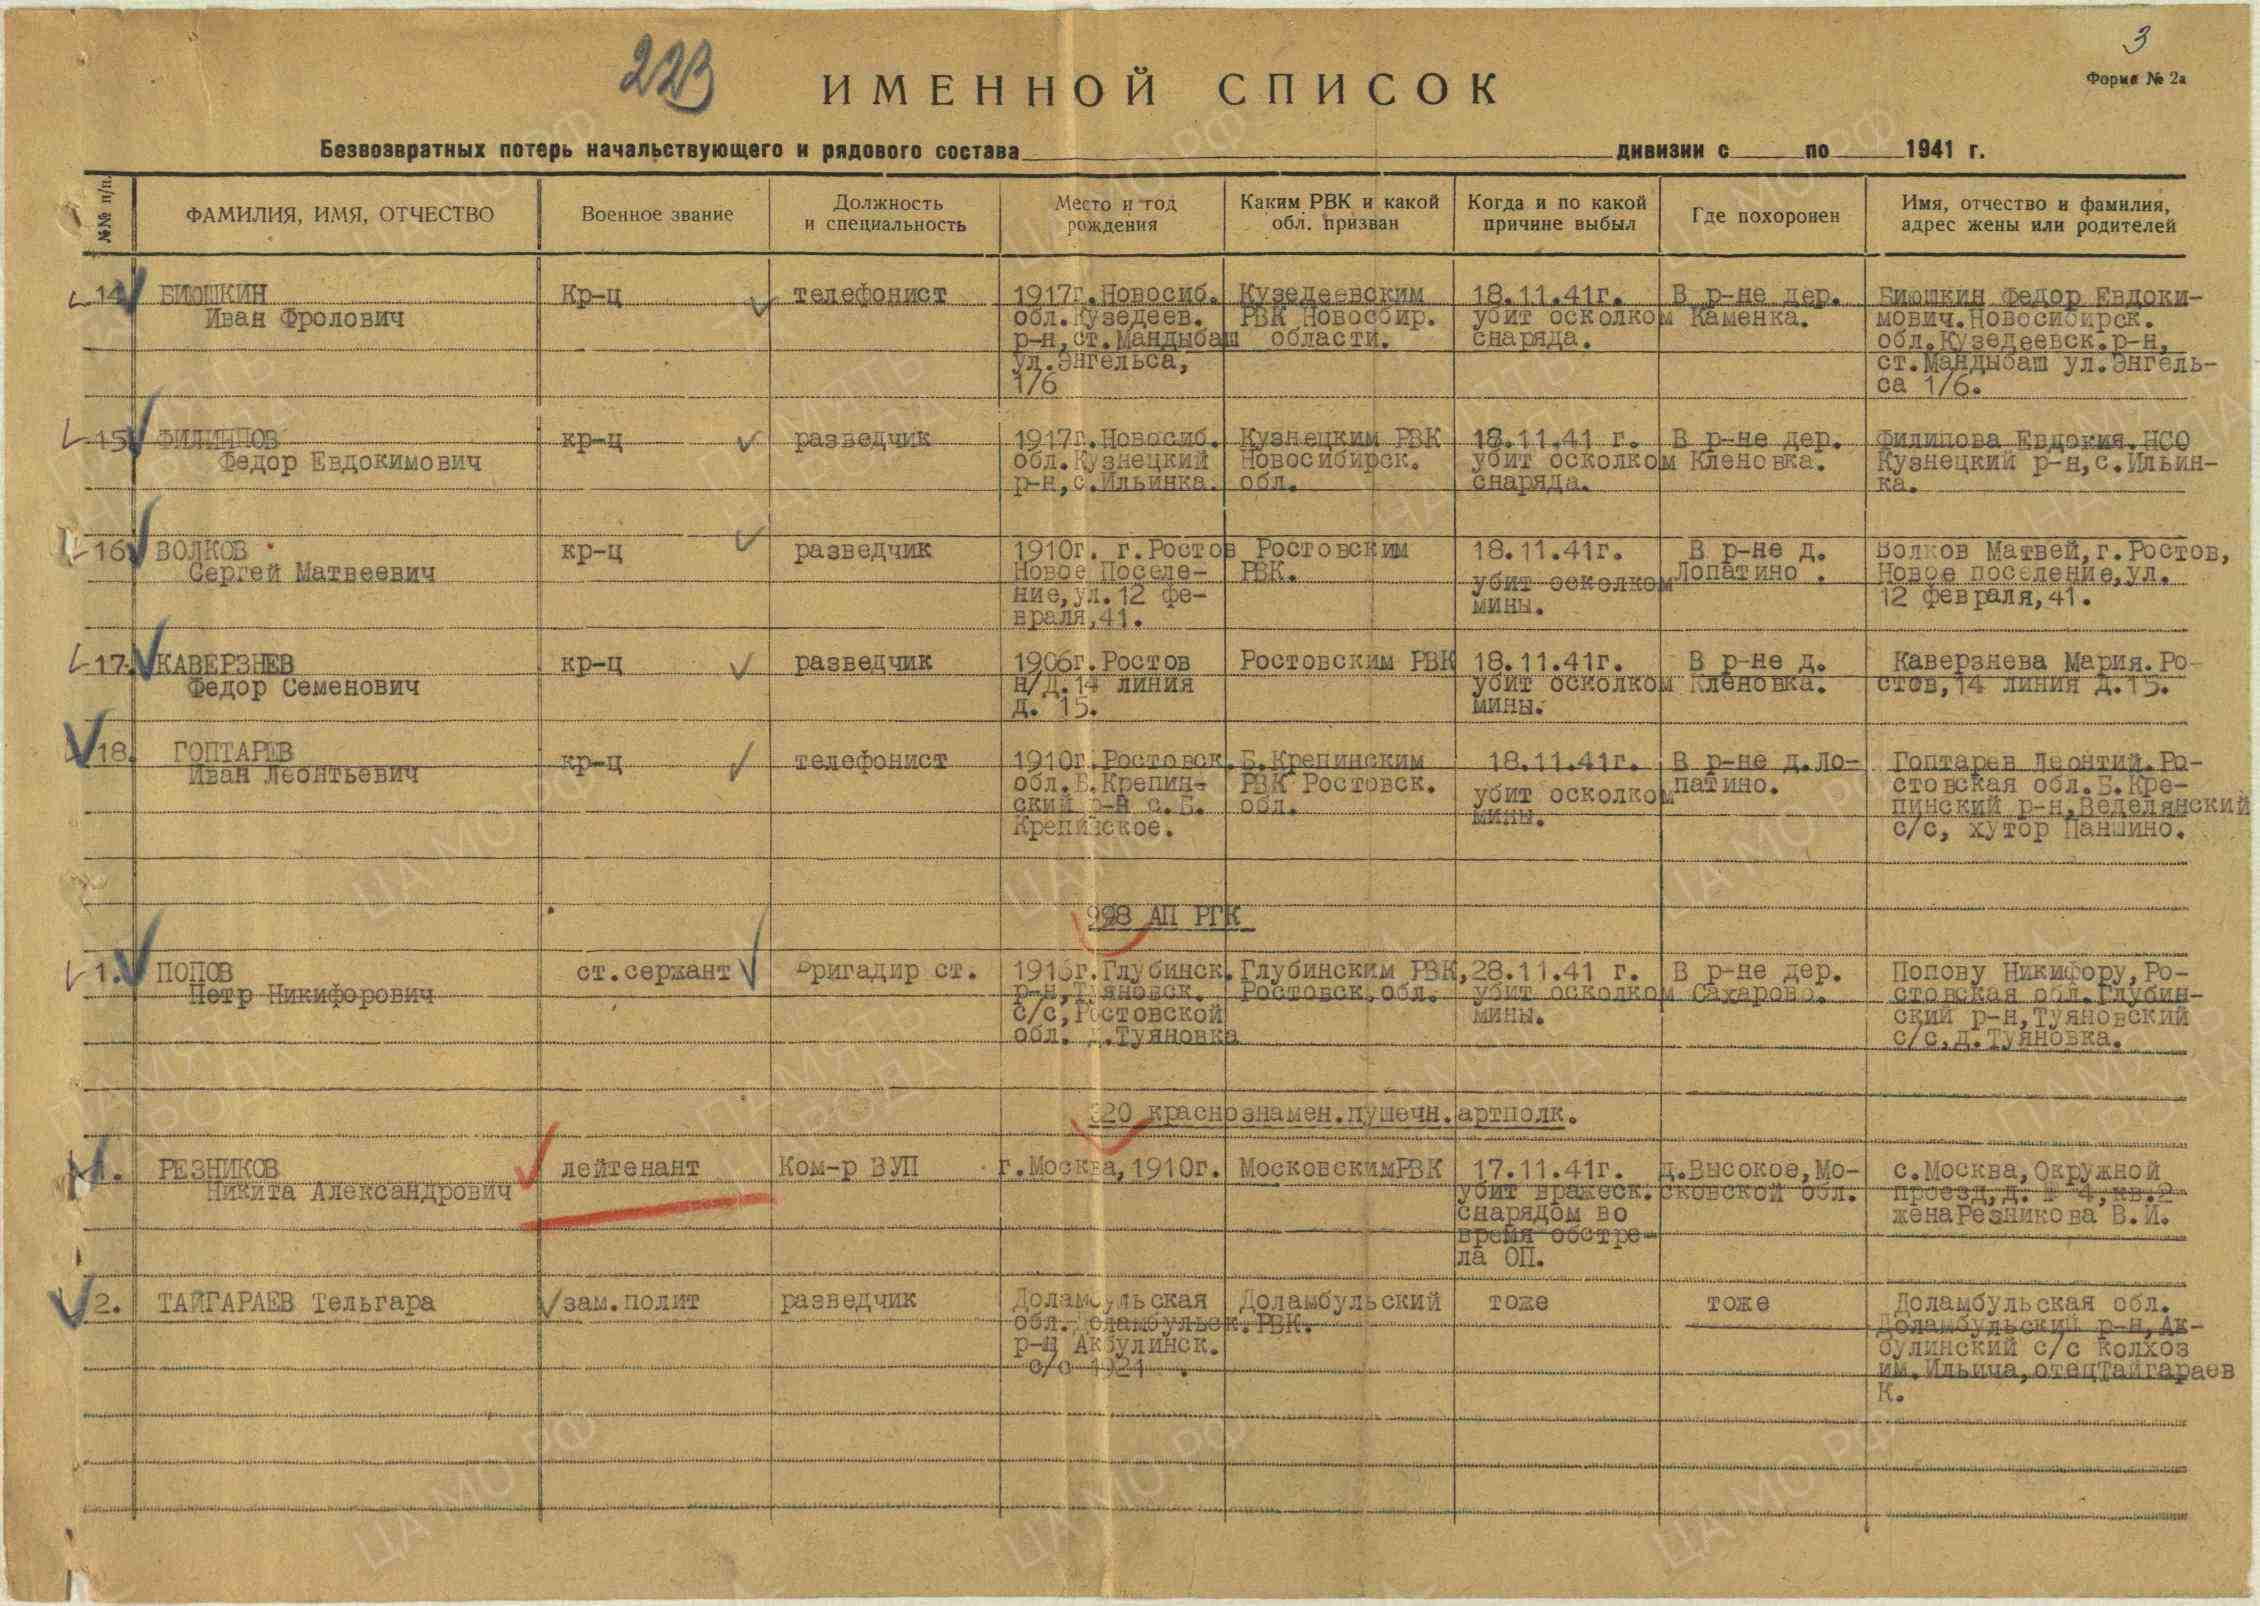 223
3
Форма № 2а
ИМЕННОЙ СПИСОК
Безвозвратных потерь начальствующего и рядового состава дивизии с по 1941 г.
№№ п/п.
ФАМИЛИЯ, ИМЯ, ОТЧЕСТВО
Военное звание
Должность и специальность
Место и год рождения
Каким РВК и какой обл. призван
Когда и по какой причине выбыл
Где похоронен
Имя, отчество и фамилия, адрес жены или родителей
14 БИЮШКИН кр-ц телефонист 1917г.Новосиб. Кузедеевским 18.11.41г. В р-не дер. Биюшкин Федор Евдоки-
Иван Фролович обл.Кузедеев. РВК Новосбир. убит осколком Каменка. мович.Новосибирск.
р-н,ст.Мандыбаш области. снаряда. обл.Кузедеевск.р-н,
ул.Энгельса, ст.Мандыбаш ул.Энгель-
1/6 са 1/6.
15 ФИЛИППОВ кр-ц разведчик 1917г.Новосиб. Кузнецким РВК 18.11.41 г. В р-не дер. Филипова Евдокия.НСО
Федор Евдокимович обл.Кузнецкий Новосибирск. убит осколком Кленовка. Кузнецкий р-н,с.Ильин-
р-н,с.Ильинка. обл. снаряда. ка.
16 ВОЛКОВ кр-ц разведчик 1910г. г.Ростов Ростовским 18.11.41г. В р-не д. Волков Матвей,г.Ростов,
Сергей Матвеевич Новое Поселе- РВК. убит осколком Лопатино . Новое поселение,ул.
ние,ул.12 фе- мины. 12 февраля,41.
враля,41.
17. КАВЕРЗНЕВ кр-ц разведчик 1906г.Ростов Ростовским РВК 18.11.41г. В р-не д. Каверзнева Мария.Ро-
Федор Семенович н/Д.14 линия убит осколком Кленовка. стов,14 линия д.15.
д. 15. мины.
18. ГОПТАРЕВ кр-ц телефонист 1910г.Ростовск. Б.Крепинским 18.11.41г. В р-не д.Ло- Гоптарев Леонтий.Ро-
Иван Леонтьевич обл.Б.Крепин- РВК Ростовск. убит осколком патино. стовская обл.Б.Кре-
ский р-н с.Б. обл. мины. пинский р-н,Веделянский
Крепинское. с/с, хутор Паншино.
998 АП РГК
1. ПОПОВ ст.сержант Бригадир ст. 1916г.Глубинск. Глубинским РВК, 28.11.41 г. В р-не дер. Попову Никифору,Ро-
Петр Никифорович р-н,Туяновск. Ростовск.обл. убит осколком Сахарово. стовская обл.Глубин-
с/с,Ростовской мины. ский р-н,Туяновский
обл. д.Туяновка с/с,д.Туяновка.
320 краснознамен.пушечн.артполк.
1. РЕЗНИКОВ лейтенант Ком-р ВУП г.Москва,1910г. МосковскимРВК 17.11.41г. д.Высокое,Мо- с.Москва,Окружной
Никита Александрович убит вражеск. сковской обл. проезд,д. № 4,кв.2
снарядом во женаРезникова В.И.
время обстре-
ла ОП.
2. ТАЙГАРАЕВ Тельгара зам.полит разведчик Доламбульская Доламбульский тоже тоже Доламбульская обл.
обл.Доламбульск. РВК. Доламбульский р-н,Ак-
р-н Акбулинск. булинский с/с колхоз
с/с 1921 . им.Ильича,отецТайгараев
К.